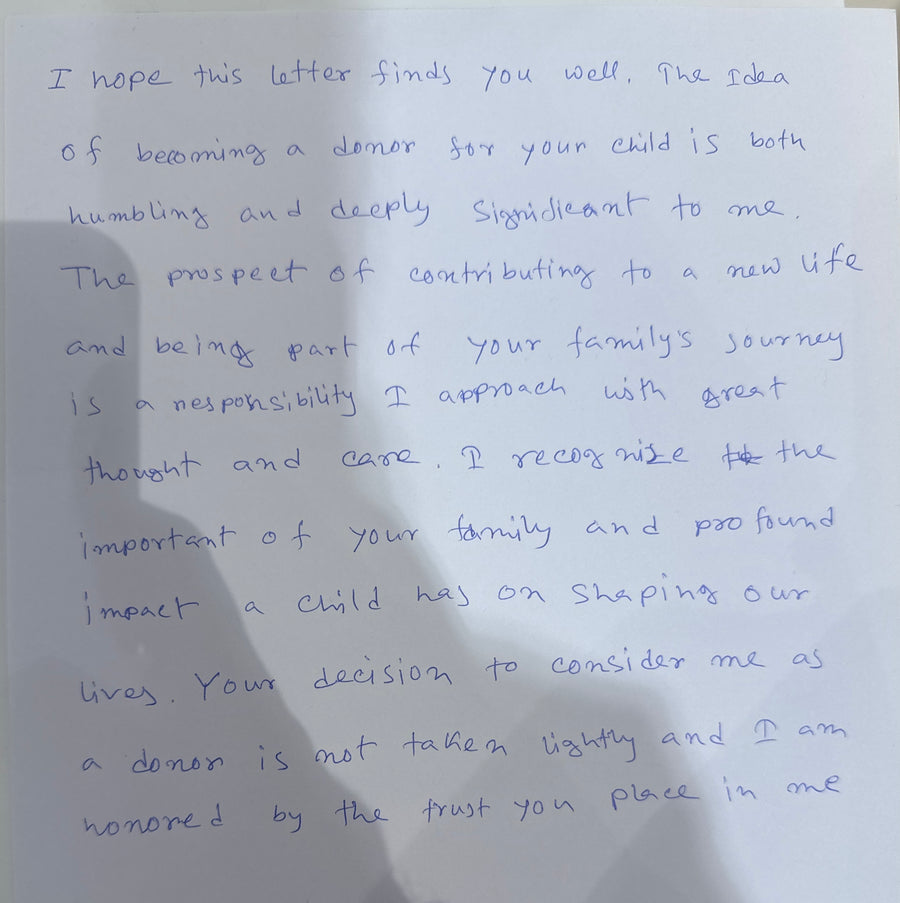 I hope this letter finds you well. The Idea
of becoming a donor for your child is both
humbling and deeply significant to me.
The prospect of contributing to a new life
and being part of your family's journey
is a responsibility I approach with great
thought and care. I recognize the
important of your family and profound
impact a child has on shaping our
lives. Your decision to consider me as
a donor is not taken lightly and I am
honored by the trust you place in me